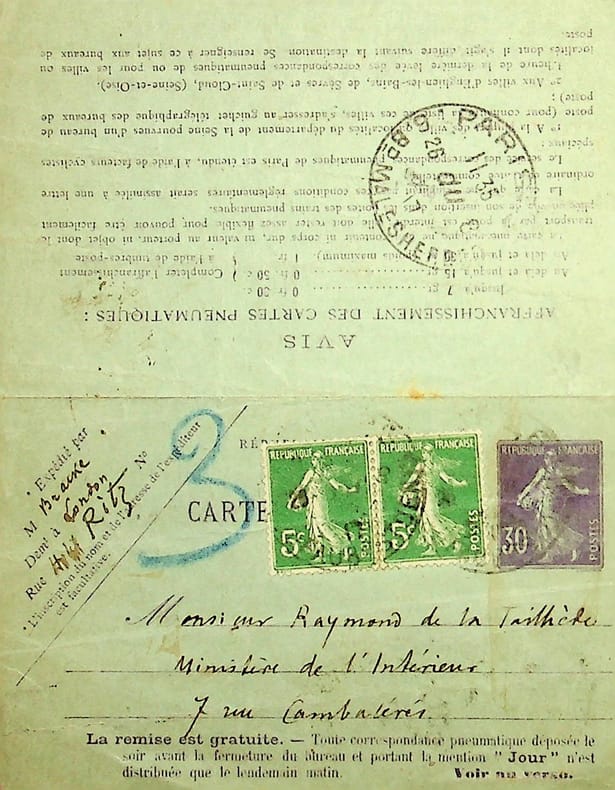 AVIS
AFFRANCHISSEMENT DES CARTES PNEUMATIQUES :
Jusqu'à 7 gr. 0 fr. 30.
Au delà et jusqu'à 15 gr. 0 fr. 50 c. Compléter l'affranchissement
Au delà et jusqu'à 30 gr. (poids maximum). 1 fr. à l'aide de timbres-poste
La carte pneumatique ne doit contenir ni corps dur, ni valeur au porteur, ni objet dont le
transport par la poste est interdit. Elle doit rester assez flexible pour pouvoir être facilement
de son insertion dans les boîtes des trains pneumatiques.
La carte ne remplissant pas les conditions réglementaires serait assimilée à une lettre
ordinaire
Le service des correspondances pneumatiques de Paris est étendu, à l'aide de facteurs cyclistes
spéciaux :
1° A la des villes localités du département de la Seine pourvues d'un bureau de
poste (pour connaître la liste de ces villes, s'adresser au guichet télégraphique des bureaux de
poste) ;
2° Aux villes d'Enghien-les-Bains, de Sèvres et de Saint-Cloud, (Seine-et-Oise).
L'heure de la dernière levée des correspondances pneumatiques de ou pour les villes ou
localités dont il s'agit diffère suivant la destination. Se renseigner à ce sujet aux bureaux de
poste.
PARIS
Bd MALESHERBES
Expédié par
M Braine
Demt à London
Rue Hotel Ritz No
L'inscription du nom et de l'adresse de l'expéditeur
est facultative.
3
CARTE
REPUBLIQUE FRANÇAISE
5c
POSTES
REPUBLIQUE FRANÇAISE
5c
POSTES
REPUBLIQUE FRANÇAISE
30
POSTES
Monsieur Raymond de la Tailhède
Ministère de l'Intérieur
7 rue Cambacérès
La remise est gratuite. — Toute correspondance pneumatique déposée le
soir avant la fermeture du bureau et portant la mention "Jour" n'est
distribuée que le lendemain matin. Voir au verso.